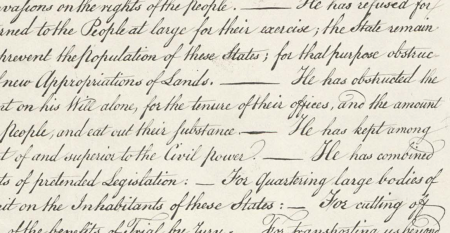 nvasions on the rights of the people. — He has refused for
rned to the People at large for their exercise; the State remain
prevent the Population of these States; for that purpose obstruc
f new Appropriations of Lands. — He has obstructed the
nt on his Will alone, for the tenure of their offices, and the amount
People, and eat out their substance. — He has kept among
t of and superior to the Civil power. — He has combined
ts of pretended Legislation: — For Quartering large bodies of
mit on the Inhabitants of these States: — For cutting off
of the benefits of Trial by Jury: — For transporting us beyond